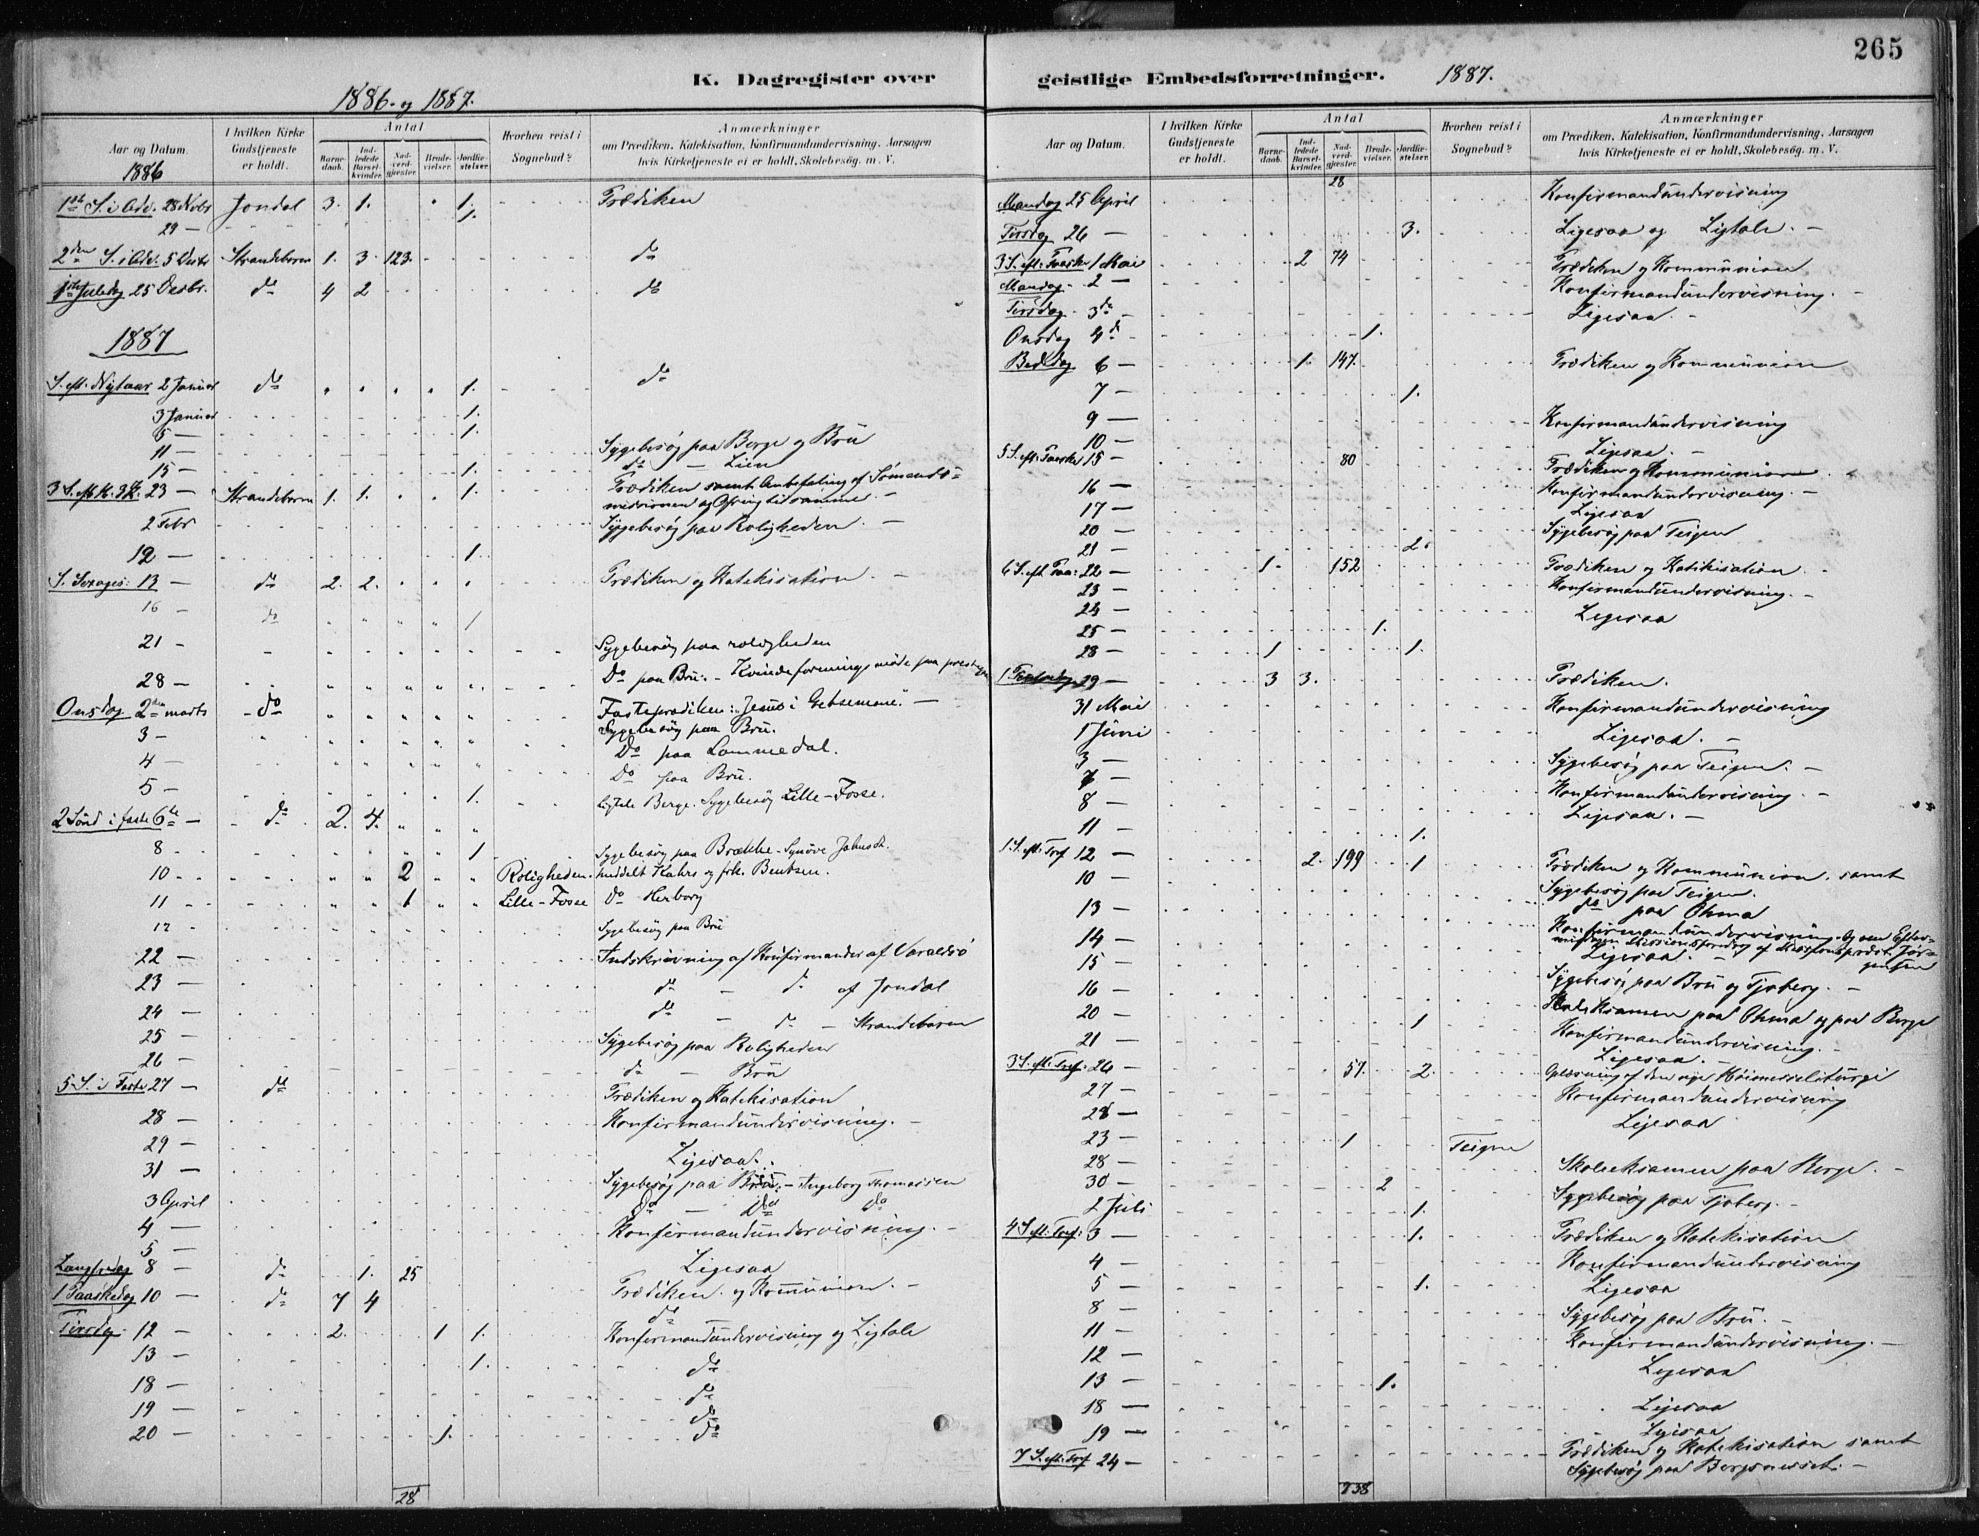 265
K. Dagregister over
1886. og 1887.
Aar og Datum.
1886
I hvilken Kirke Gudstjeneste er holdt.
Antal
Barnedaab.
Indledede Barselkvinder.
Nadverdgjester.
Brudevielser.
Jordfæstelser.
Hvorhen reist i Sognebud?
Anmærkninger
om Prædiken, Katekisation, Konfirmandundervisning, Aarsagen
hvis Kirketjeneste ei er holdt, Skolebesøg m. V.
1ste S. i Adv. 28 Novbr Jondal 3. 1. 1. Prædiken
29 — 1.
2den S. i Adv. 5 Decbr Strandebarm 1. 3 123. do
1ste Juledag 25 Decbr. do 4 2 do
1887
S. eft. Nytaar 2 Januar do 1. do
3 Januar 1.
5 — 1.
11 — Sygebesøg paa Berge og Bru
15 — 1. do — Lien
3 S. eft. H. 3 K. 23 — Strandebarm 1. 1. 1. Prædiken samt Anbefaling af Sømands-
missionen og Ofring til samme —
2 Febr Sygebesøg paa Roligheden. —
12 — 1.
S. Sexages: 13 — do 2. 2. Prædiken og Katekisation. —
16 — do 1
21 — Sygebesøg paa roligheden
28 — Do paa Bru. — Kvindeforenings møde paa
Onsdag 2den marts — do Fasteprædiken: "Jesus i Getsemane". —
3 — Sygebesøg paa Bru.
4 — Do paa Lammedal.
5 — Do paa Bru.
1. Ligtale Berge. Sygebesøg Lille-Fosse.
2 Sønd i faste 6te — do 2. 4.
8 — 1 Sygebesøg paa Brække — Synøve Johnsdt.
10 — 2 Roligheden. meddelt Kahrs og frk. Bentsen.
11 — 1 Lille-Fosse Do Herborg
12 — Sygebesøg paa Bru
22 — Indskrivning af Konfirmander af Varaldsø
23 — do — do af Jondal
24 — do — do — Strandebarm
25 — Sygebesøg paa Roligheden
26 — do — Bru
5 S. i Faste 27 — do Prædiken og Katekisation
28 — Konfirmandundervisning. —
29 — Ligesaa.
31 — Sygebesøg paa Bru: — Ingeborg Thomassen
3 April do — do do
4 — Konfirmandundervisning. —
5 — Ligesaa
Langfredag 8 — do 1. 25 Prædiken og Kommunion. —
1 Paaskedag 10 — do 7 4 do
Tirsdag 12 — 2. 1 1. Konfirmandundervisning og Ligtale
13 — 1. do
18 — do
19 — do
20 — 1. do
28
geistlige Embedsforretninger. 1887.
Aar og Datum.
I hvilken Kirke Gudstjeneste er holdt.
Antal
Barnedaab.
Indledede Barselkvinder.
Nadverdgjester.
Brudevielser.
Jordfæstelser.
Hvorhen reist i Sognebud?
Anmærkninger
om Prædiken, Katekisation, Konfirmandundervisning, Aarsagen
hvis Kirketjeneste ei er holdt, Skolebesøg m. V.
28
Mandag 25 April Konfirmandundervisning
Tirsdag 26 — 3. Ligesaa og Ligtale. —
3 S. eft. Paaske 1 Mai 2 74 Prædiken og Kommunion
Mandag 2 — Konfirmandundervisning. —
Tirsdag 3de — Ligesaa. —
Onsdag 4de 1.
Bededag 6 — 1. 147. Prædiken og Kommunion
7 — 1.
9 — Konfirmandundervisning
10 — Ligesaa. —
5 S. eft. Paaske 15 — 80 Prædiken og Kommunion
16 — Konfirmandundervisning. —
17 — Ligesaa
20 — Sygebesøg paa Teigen
21 — 2.
6 S. eft. Paa: 22 — 1. 152 Prædiken og Katekisation
23 — Konfirmandundervisning. —
24 — Ligesaa
25 — 1.
28 — 1 1.
1 Pintsedag 29 — 3 3. Prædiken.
31 Mai Konfirmandundervisning
1 Juni Ligesaa. —
3 — Sygebesøg paa Teigen. —
7 — Konfirmandundervisning. —
8 — Ligesaa. —
11 — 1.
1 S. eft. Tref 12 — 2. 199 1 Prædiken og Kommunion. samt
10 — Sygebesøg paa Teigen.
13 — do paa Ohma
14 — Konfirmandundervisning. Og om Efter-
middagen Missionsforedrag af Missionsprest Jør-
gensen
15 — Ligesaa. —
16 — Sygebesøg paa Bru og Tjoberg. —
20 — 1 Skoleeksamen paa Ohma og paa Berge
21 — Konfirmandundervisning. —
Ligesaa. —
3 S. eft. Tref. 26 — 57. 2. Oplæsning af den nye Høimesseliturgi
27 — Konfirmandundervisning
28 — Ligesaa
23 — 1 Teigen
28 — Skoleeksamen paa Berge. —
30 — 2
2 Juli 1. Sygebesøg paa Tjoberg. —
4 S. eft. Tref: 3 — 1. Prædiken og Katekisation
4 — Konfirmandundervisning
5 — 1. Ligesaa
8 — Sygebesøg paa Bru. —
11 — Konfirmandundervisning. —
12 — Ligesaa
13 — 1.
18 — Ligesaa
19 — Ligesaa
7 S. eft. Tref 24 — Prædiken og Katekisation samt
Sygebesøg paa Bergsnesset. —
738